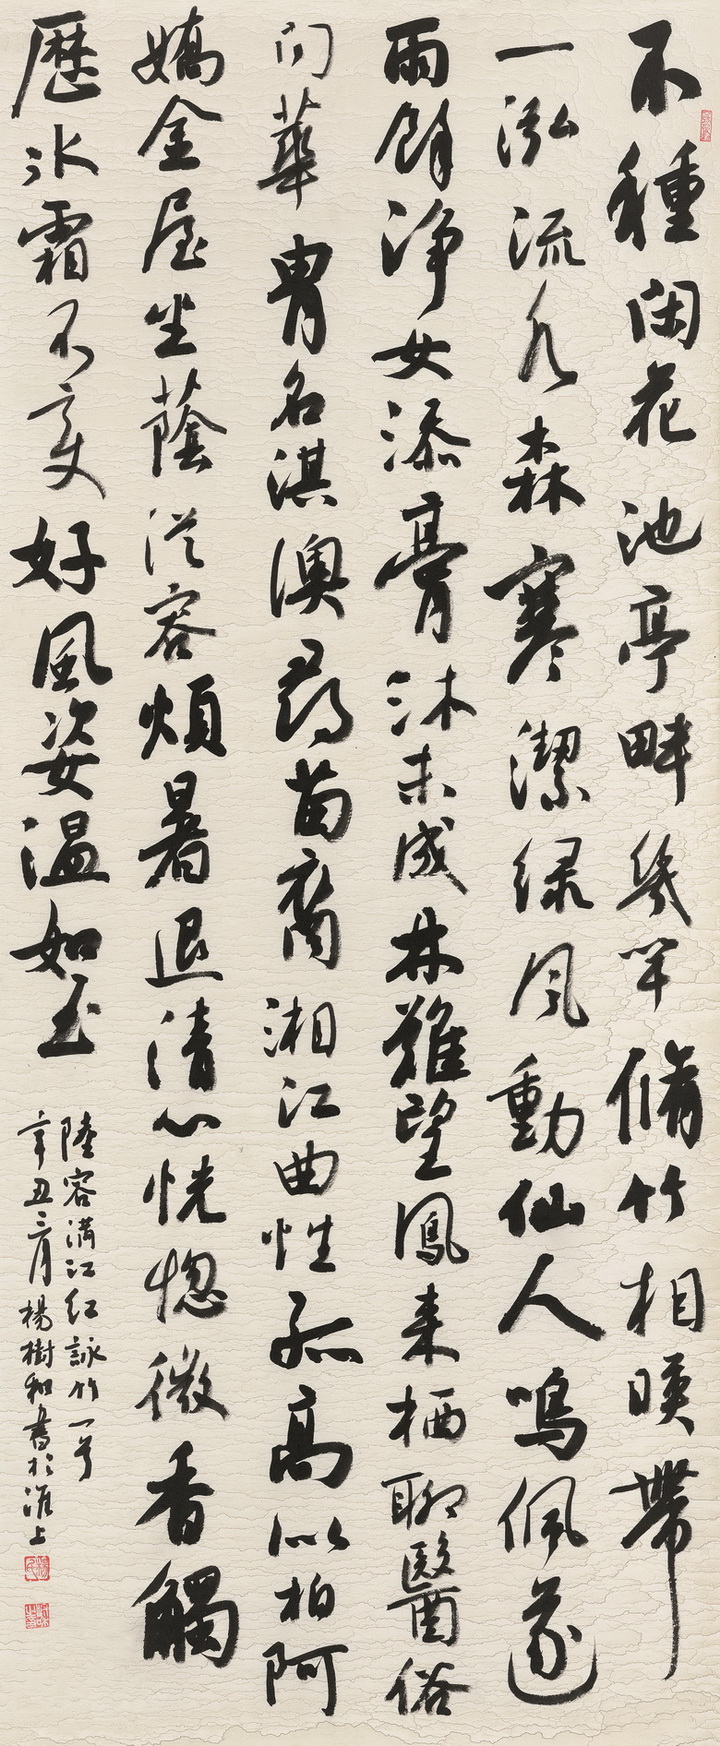 不種閑花池亭畔幾竿脩竹相暎帶
一泓流水森寒潔綠風動仙人鳴佩遂
雨餘淨女添膏沐未成林難望鳳来栖聊醫俗
问華胄名淇澳尋苗裔湘江曲性孤高似柏阿
嬌金屋坐蔭從容煩暑退清心恍惚微香觸
歷冰霜不变好風姿温如玉
陸容满江红詠竹一首
辛丑三月楊樹和書於淮上